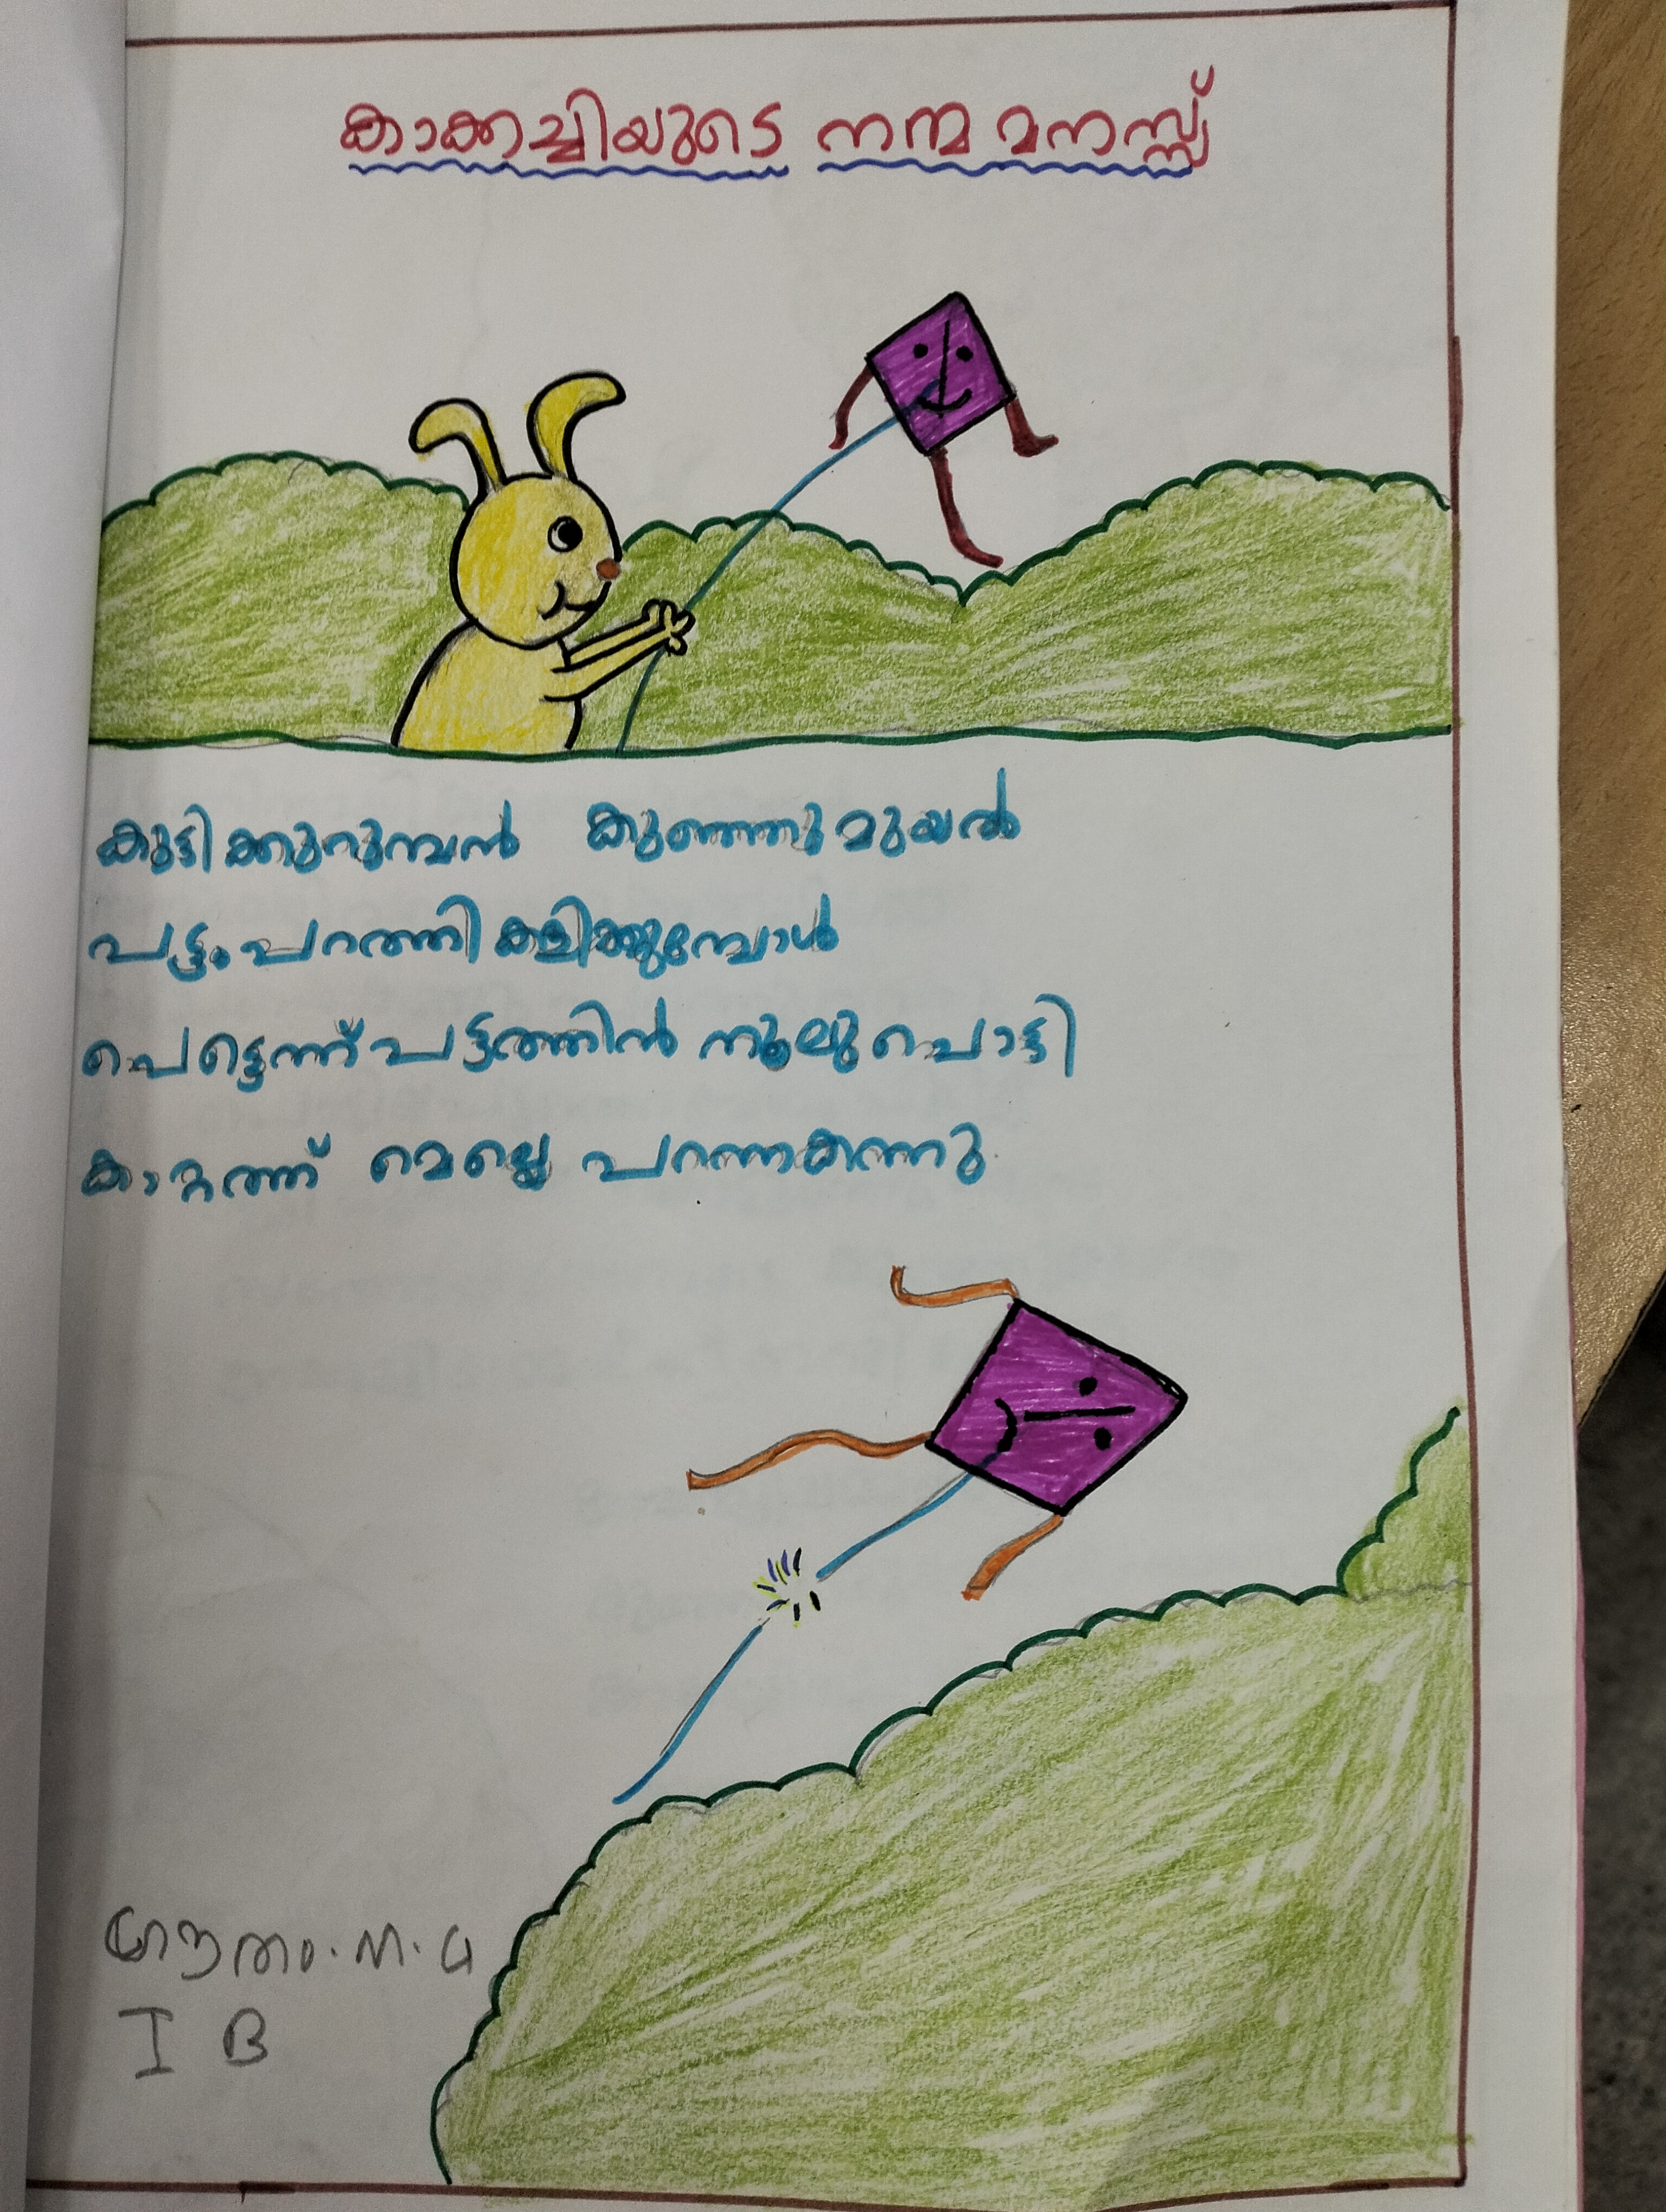 കാക്കച്ചിയുടെ നന്മ മനസ്സ്
കുട്ടിക്കുറുമ്പൻ കുഞ്ഞുമുയൽ
പട്ടംപറത്തി കളിക്കുമ്പോൾ
പെട്ടെന്ന് പട്ടത്തിൻ നൂലുപൊട്ടി
കാറ്റത്ത് മെല്ലെ പറന്നകന്നു
ഗൗതം.ന.പ
I B